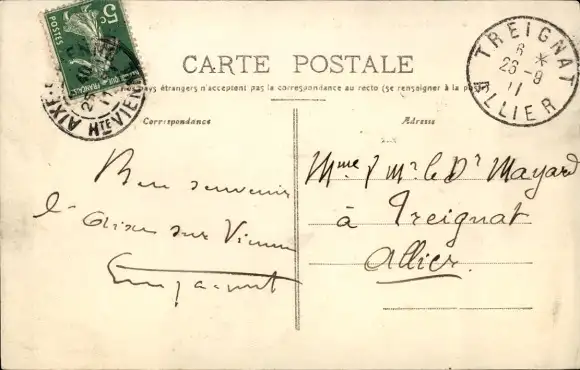 5c
POSTES
AIXE
Hte VIENNE
TREIGNAT
6 *
26-9
11
ALLIER
CARTE POSTALE
pays étrangers n'acceptent pas la correspondance au recto (se renseigner à la poste)
Correspondance
Adresse
Bon souvenir
d'Aixe sur Vienne
Mme & Mr le Dr Mayard
à Treignat
Allier